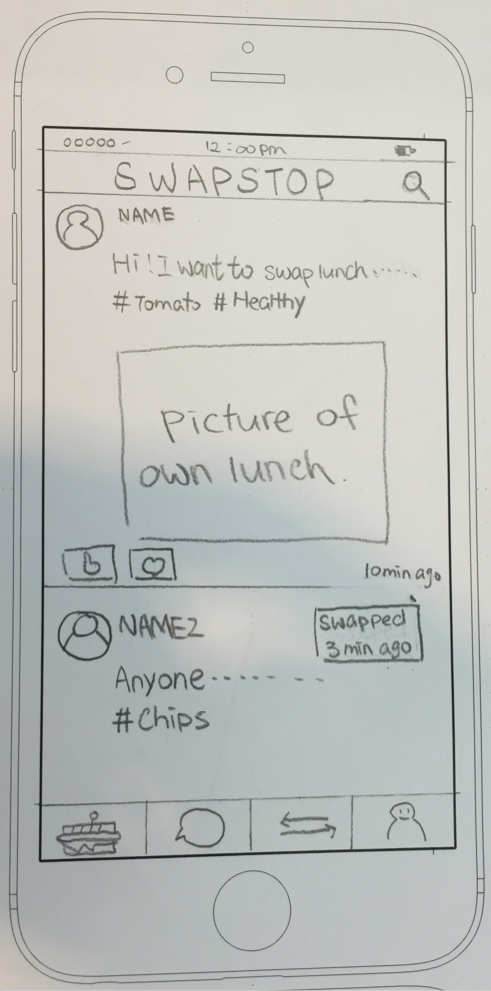 12:00pm
SWAPSTOP
NAME
Hi! I want to swap lunch......
#Tomato #Healthy
Picture of
own lunch.
10min ago
NAME2
Swapped
3 min ago
Anyone.......
#Chips